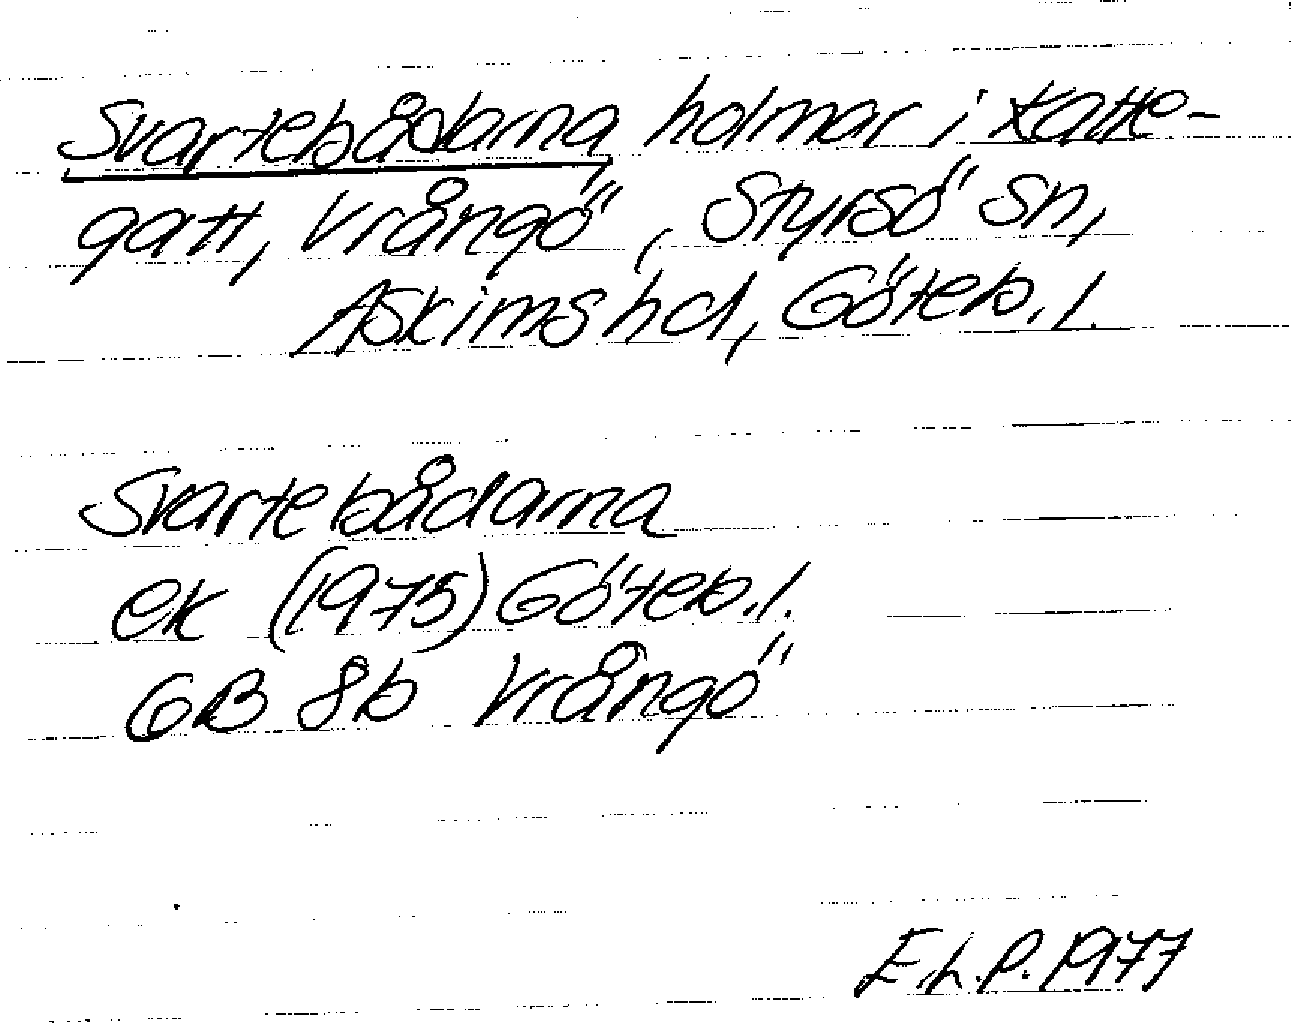 Svartebådarna, holmar i Katte-
gatt, Vrångö, Styrsö sn,
Askims hd, Göteb. l.
Svartebådarna
ek (1975) Göteb. l.
6B 8b Vrångö
E.L.P. 1977